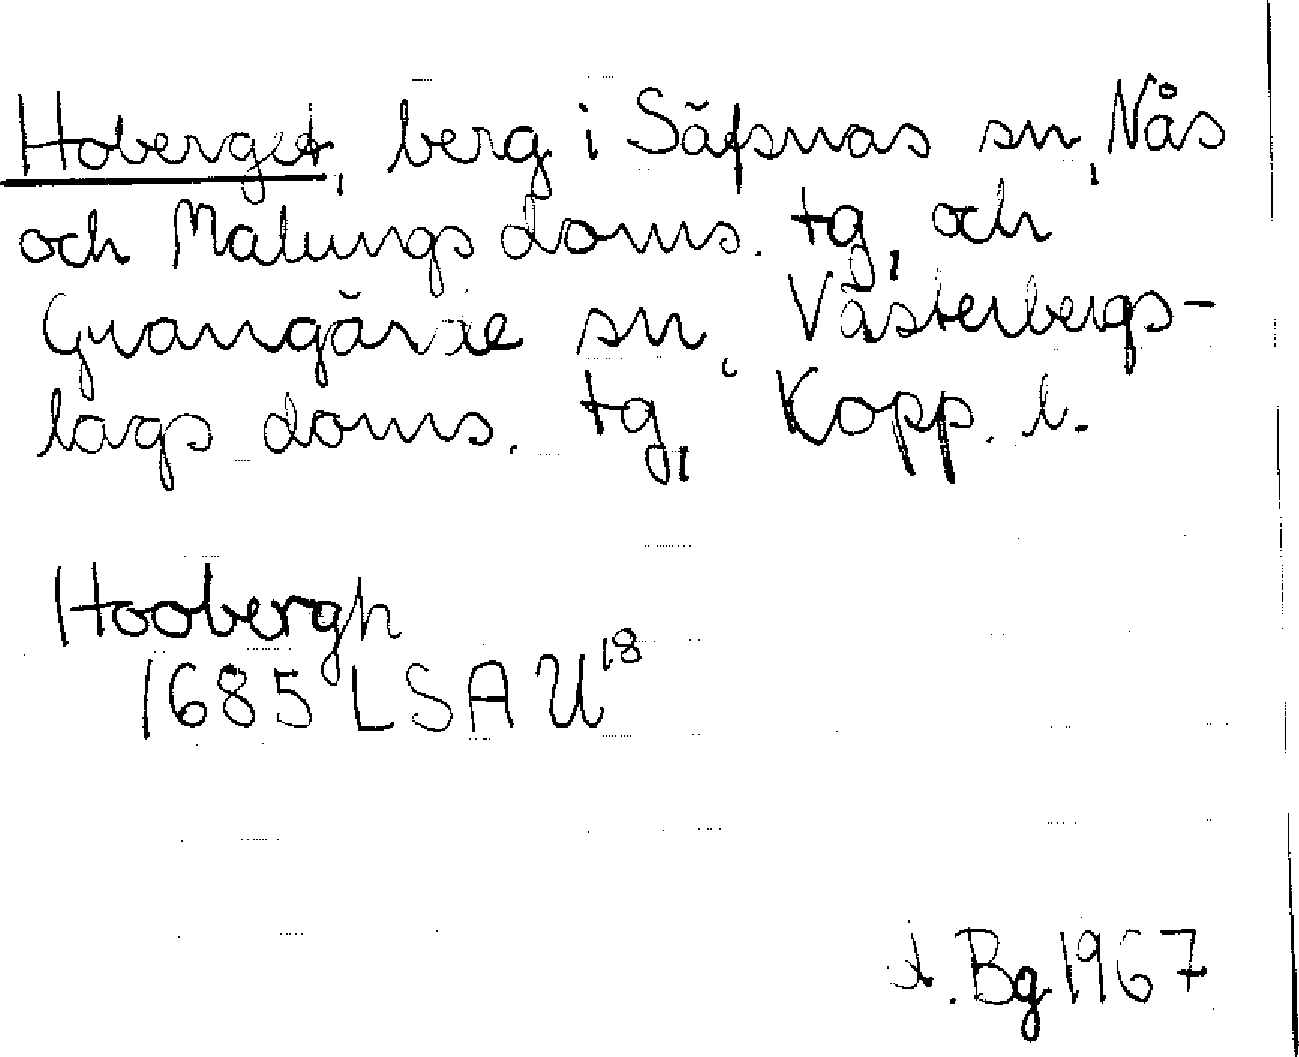 Hoberget, berg i Säfsnäs sn, Nås
och Malungs doms. tg, och
Grangärde sn, Västerbergs-
lags doms. tg, Kopp. l.
Hoobergh
1685 LSA U18
A. Bg 1967